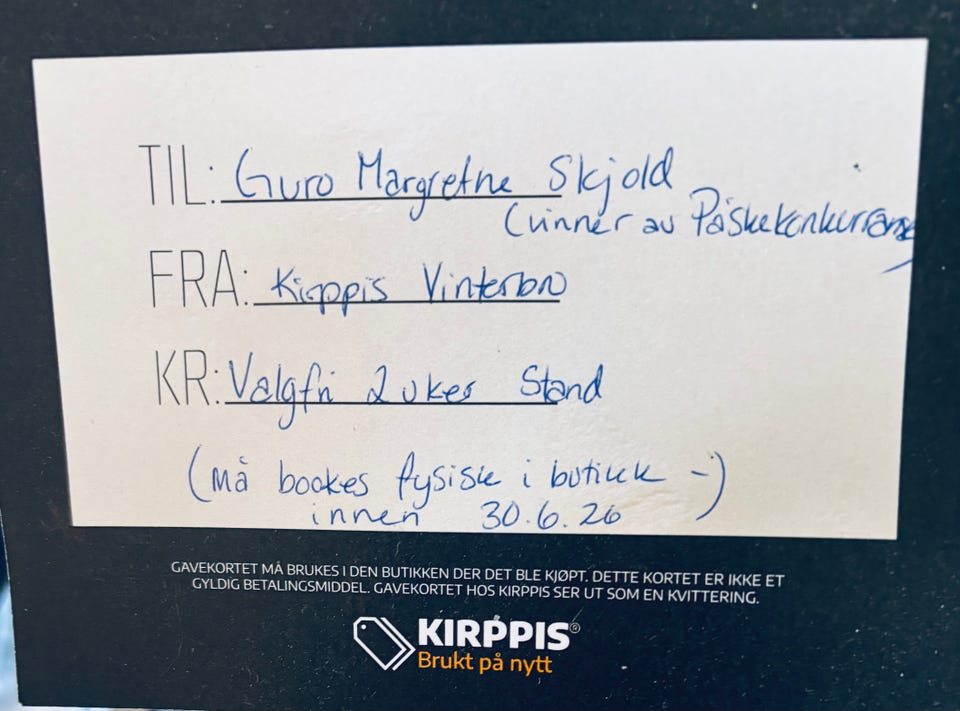 TIL: Guro Margrethe Skjold
(vinner av Påskekonkurranse
FRA: Kirppis Vinterbro
KR: Valgfri 2 ukes Stand
(må bookes fysisk i butikk -)
innen 30.6.26
GAVEKORTET MÅ BRUKES I DEN BUTIKKEN DER DET BLE KJØPT. DETTE KORTET ER IKKE ET
GYLDIG BETALINGSMIDDEL. GAVEKORTET HOS KIRPPIS SER UT SOM EN KVITTERING.
KIRPPIS®
Brukt på nytt